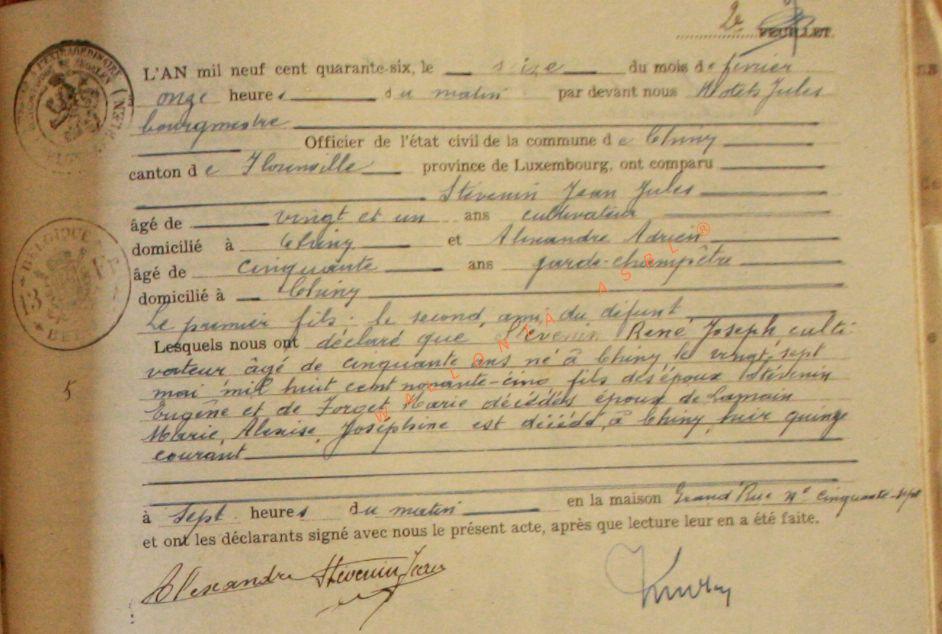 2e
FEUILLET
L'AN mil neuf cent quarante-six, le seize du mois de février
onze heures du matin par devant nous Jules
bourgmestre
Officier de l'état civil de la commune de Chiny
canton de Florenville province de Luxembourg, ont comparu
Stévenin Jean Jules
âgé de vingt et un ans cultivateur
domicilié à Chiny et Alexandre Adrien
âgé de cinquante ans garde-champêtre
domicilié à Chiny
Le premier fils. le second, ami, du défunt
Lesquels nous ont déclaré que Stévenin René Joseph culti
vateur âgé de cinquante ans né à Chiny le vingt-sept
mai mil huit cent nonante-cinq fils des époux Stévenin
Eugène et de Forget Marie décédés époux de Lamain
Marie, Alexise, Joséphine est décédé, à Chiny, hier quinze
courant
à sept heures du matin en la maison Grand'Rue No cinquante-sept
et ont les déclarants signé avec nous le présent acte, après que lecture leur en a été faite.
Alexandre Stévenin Jean
5
WALLONIA ASBL®
BELGIQUE